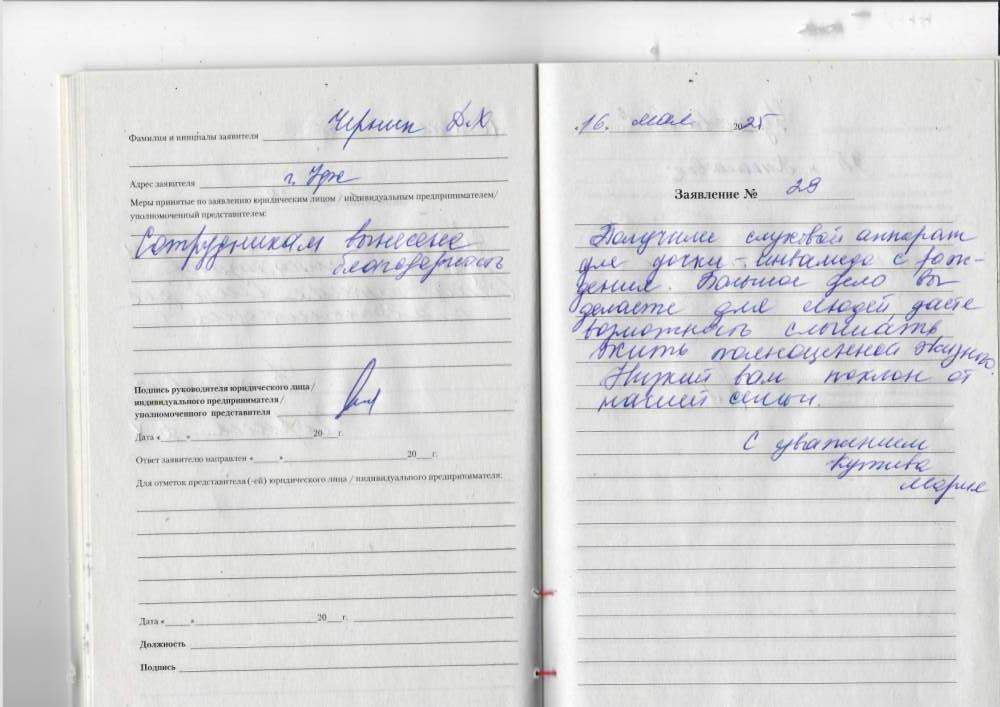 Фамилия и инициалы заявителя Черник Д.Х
Адрес заявителя г. Уфа
Меры принятые по заявлению юридическим лицом / индивидуальным предпринимателем/
уполномоченный представителем:
Сотрудникам вынесена
благодарность
Подпись руководителя юридического лица/
индивидуального предпринимателя/
уполномоченного представителя
Дата «____»____20__г.
Ответ заявителю направлен «____»____20__г.
Для отметок представителя (-ей) юридического лица / индивидуального предпринимателя:
Дата «____»____20__г.
Должность
Подпись
«16. мая 2025г.
Заявление № 29
Получили слуховой аппарат
для дочки - инвалида с рож-
дения. Большое дело вы
делаете для людей даете
возможность слышать
жить полноценной жизнью.
Низкий вам поклон от
нашей семьи.
С уважением
Мария